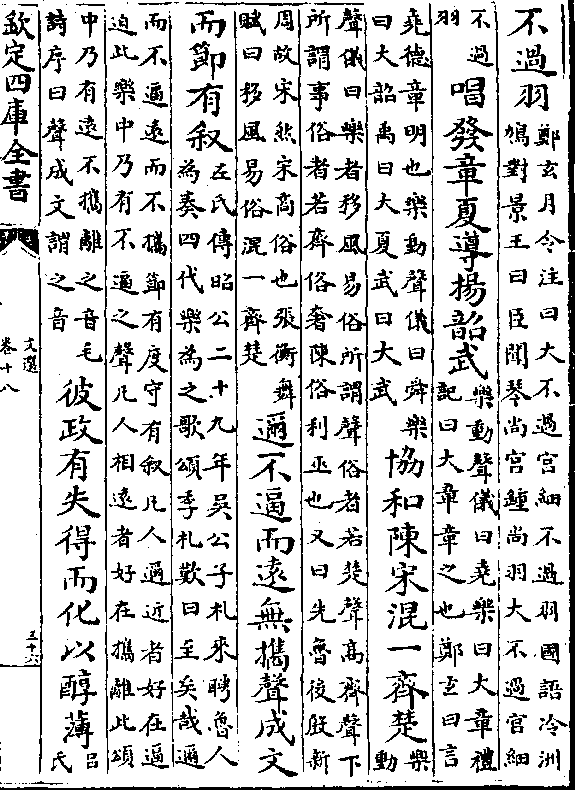 不過羽鄭玄月令注曰大不過宫細不過羽國語泠洲
鳩對景王曰臣聞琴尚宫鐘尚羽大不過宫細
不過
羽
唱發章夏導揚韶武樂動聲儀曰堯樂曰大章禮
記曰大章章之也鄭玄曰言
堯德章明也樂動聲儀曰舜樂
曰大韶禹曰大夏武曰大武
協和陳宋混一齊楚樂
動
聲儀曰樂者移風易俗所謂聲俗者若楚聲髙齊聲下
所謂事俗者若齊俗奢陳俗利巫也又曰先魯後殷新
周故宋然宋商俗也張衡舞
賦曰移風易俗混一齊楚
邇不逼而逺無攜聲成文
而節有叙左氏傳昭公二十九年吴公子札來聘魯人
為奏四代樂為之歌頌季札歎曰至矣哉邇
而不逼逺而不攜節有度守有叙凡人邇近者好在逼
迫此樂中乃有不逼之聲凡人相逺者好在攜離此頌
中乃有逺不攜離之音毛
詩序曰聲成文謂之音
彼政有失得而化以醇薄吕
氏
欽定四庫全書
文選
卷十八
三十六